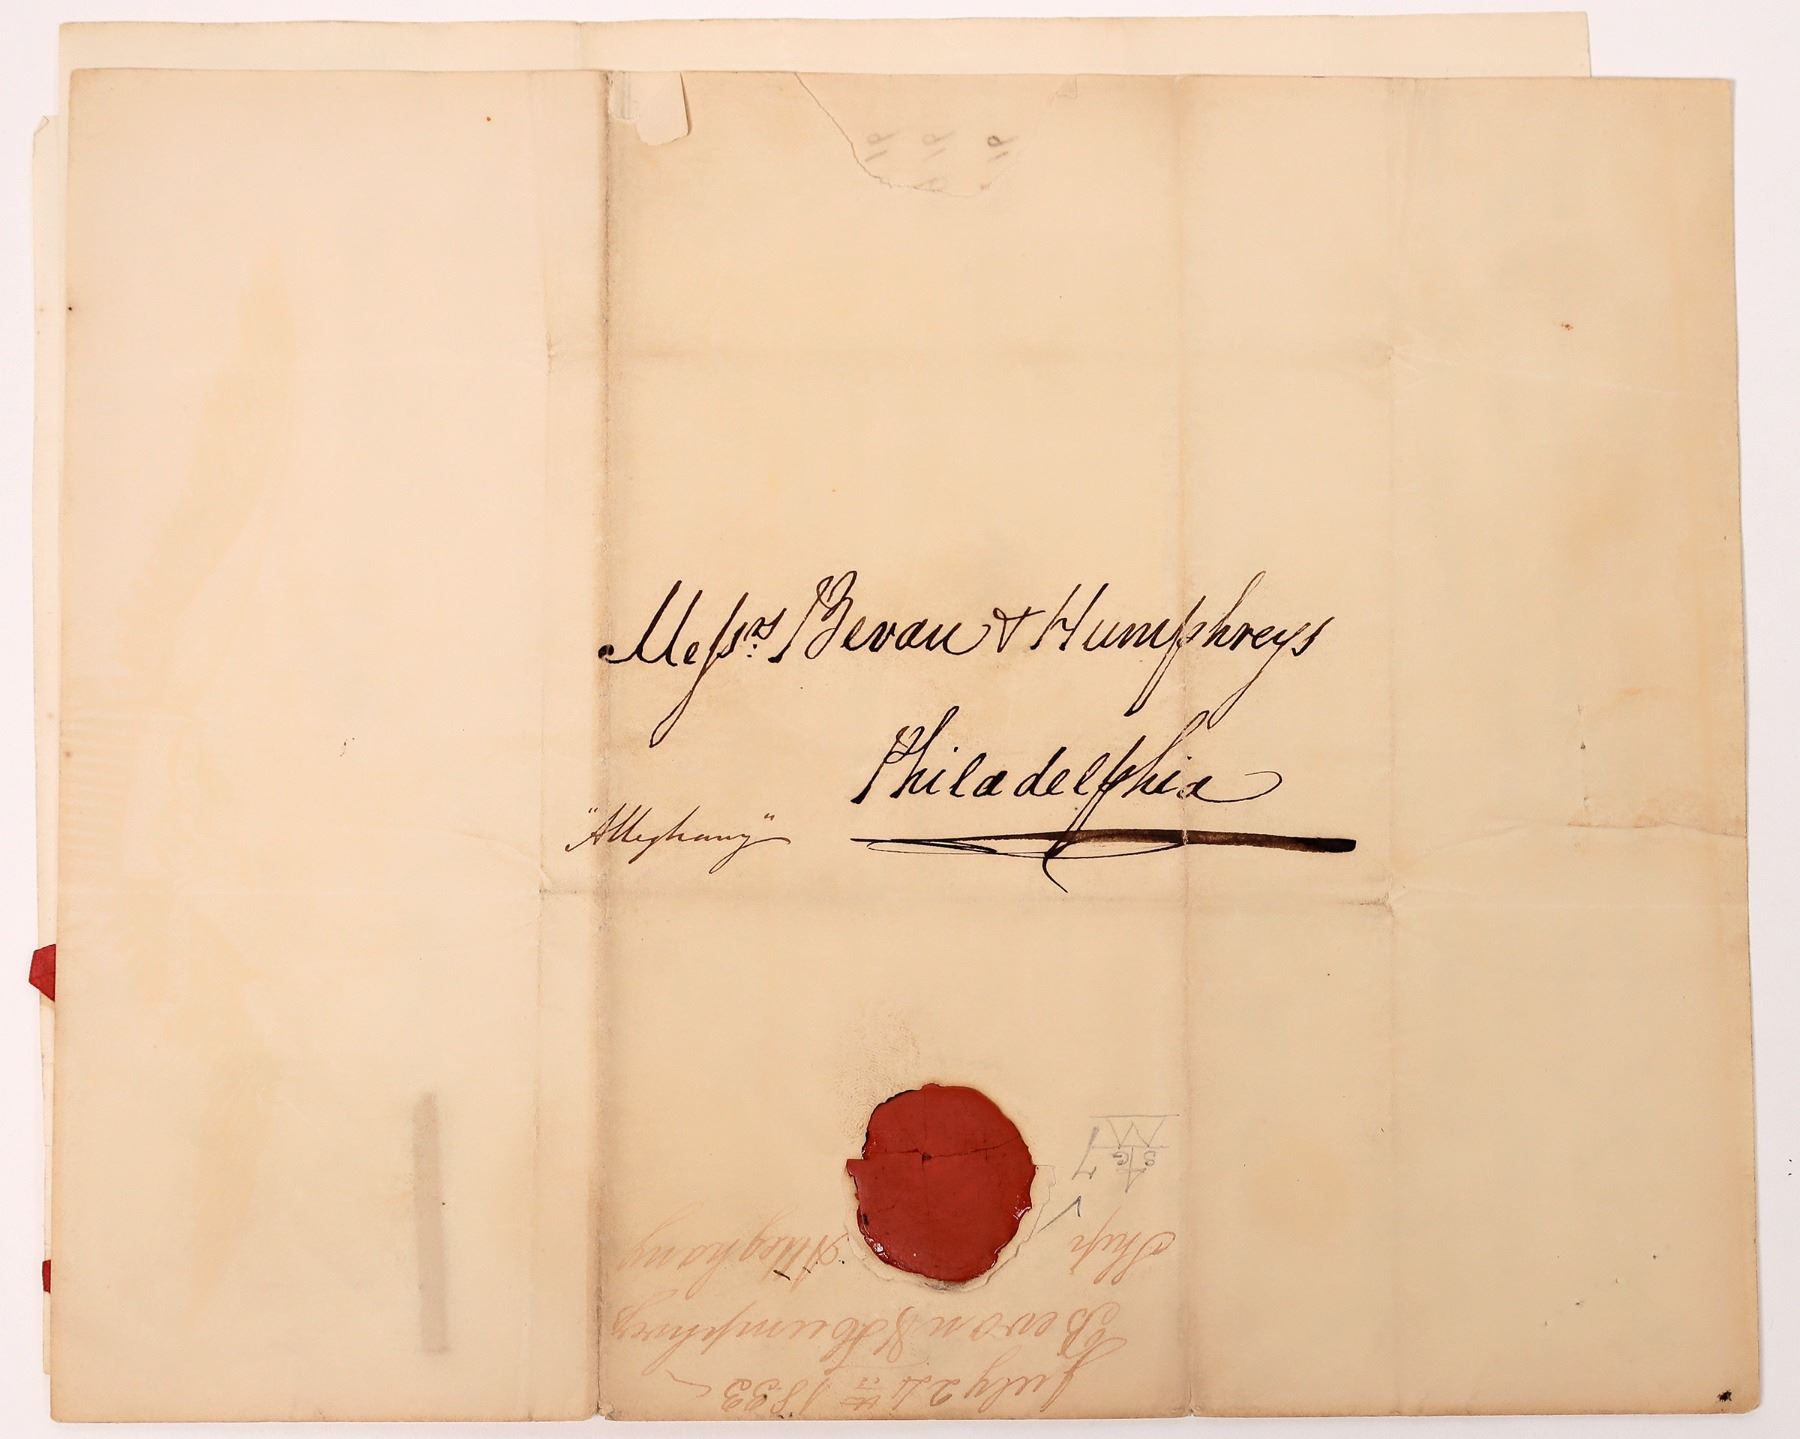 Messrs. Bevan & Humphreys
Philadelphia
"Alleghany"
July 24th 1833
Bevan & Humphreys
Ship Alleghany
7